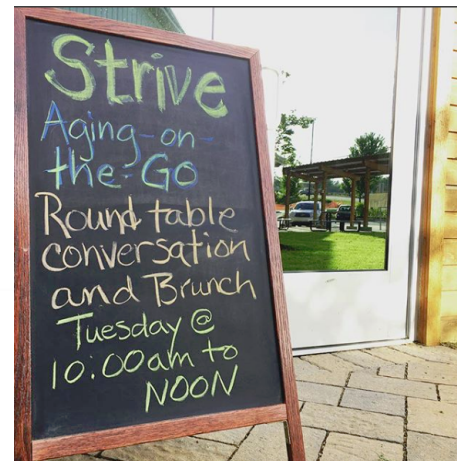 Strive
Aging-on-
the-Go
Round table
conversation
and Brunch
Tuesday @
10:00am to
NOON